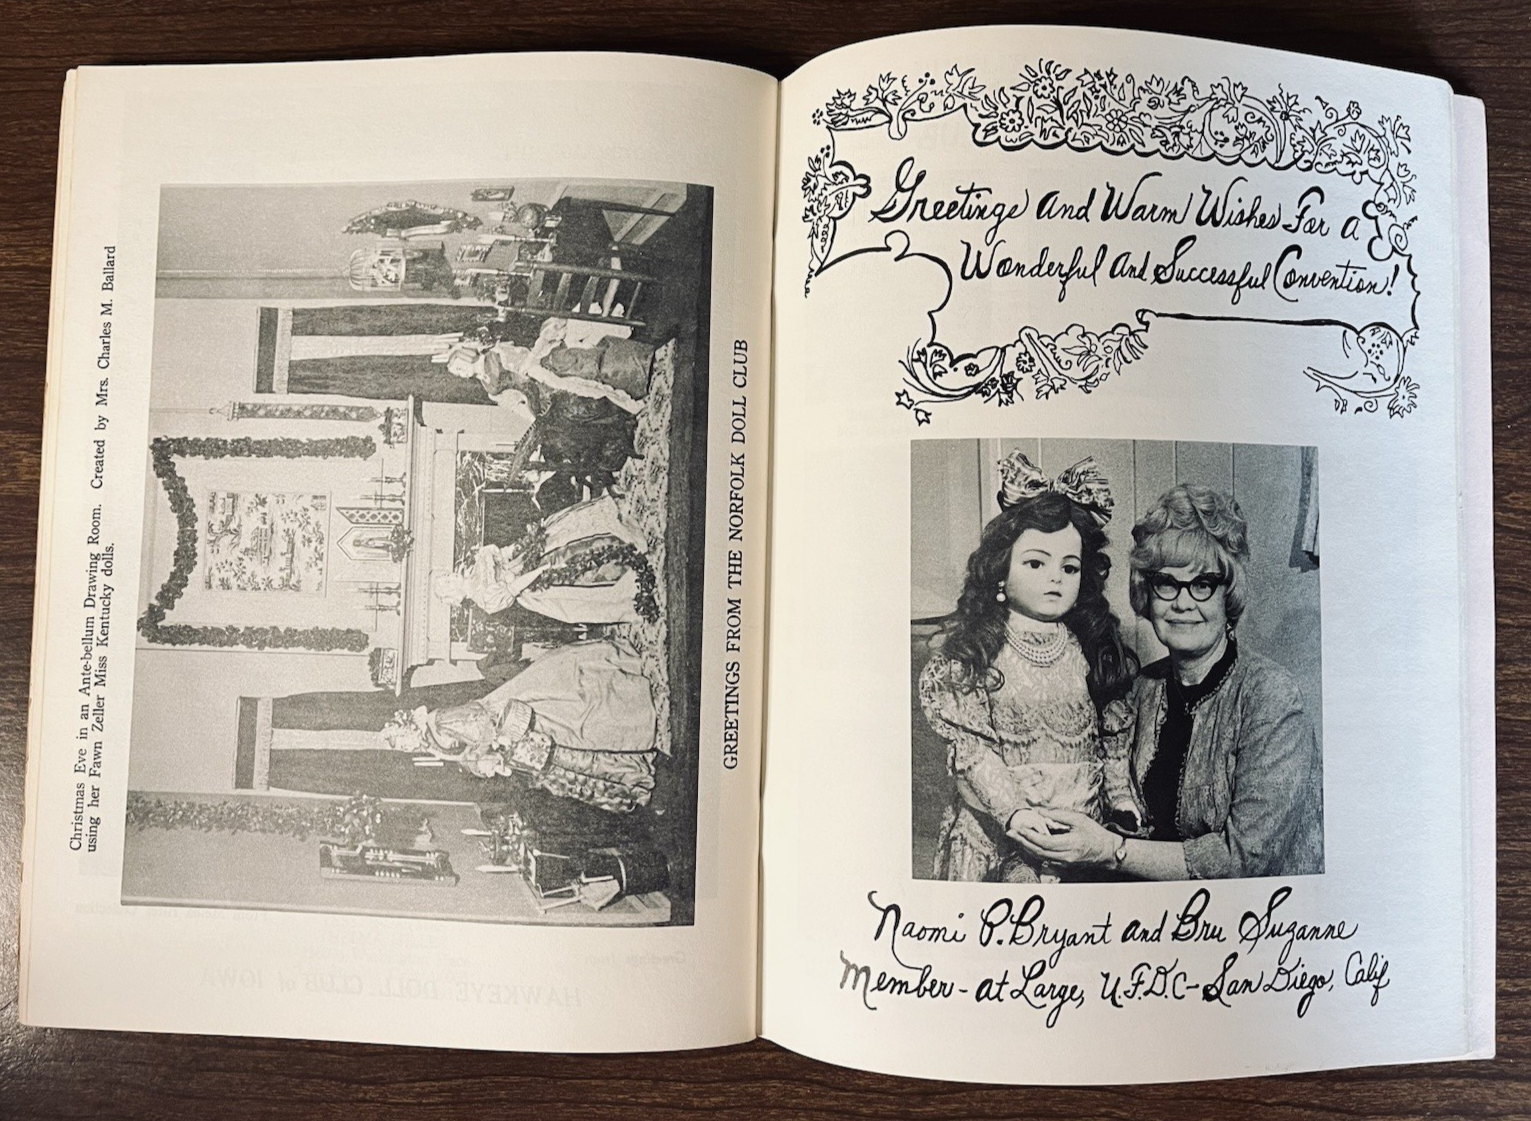 Christmas Eve in an Ante-bellum Drawing Room. Created by Mrs. Charles M. Ballard
using her Fawn Zeller Miss Kentucky dolls.
GREETINGS FROM THE NORFOLK DOLL CLUB
Greetings And Warm Wishes For a
Wonderful And Successful Convention!
Naomi P. Bryant and Bru Suzanne
Member-at Large, U.F.D.C-San Diego, Calif
HAWKEYE DOLL CLUB of IOWA